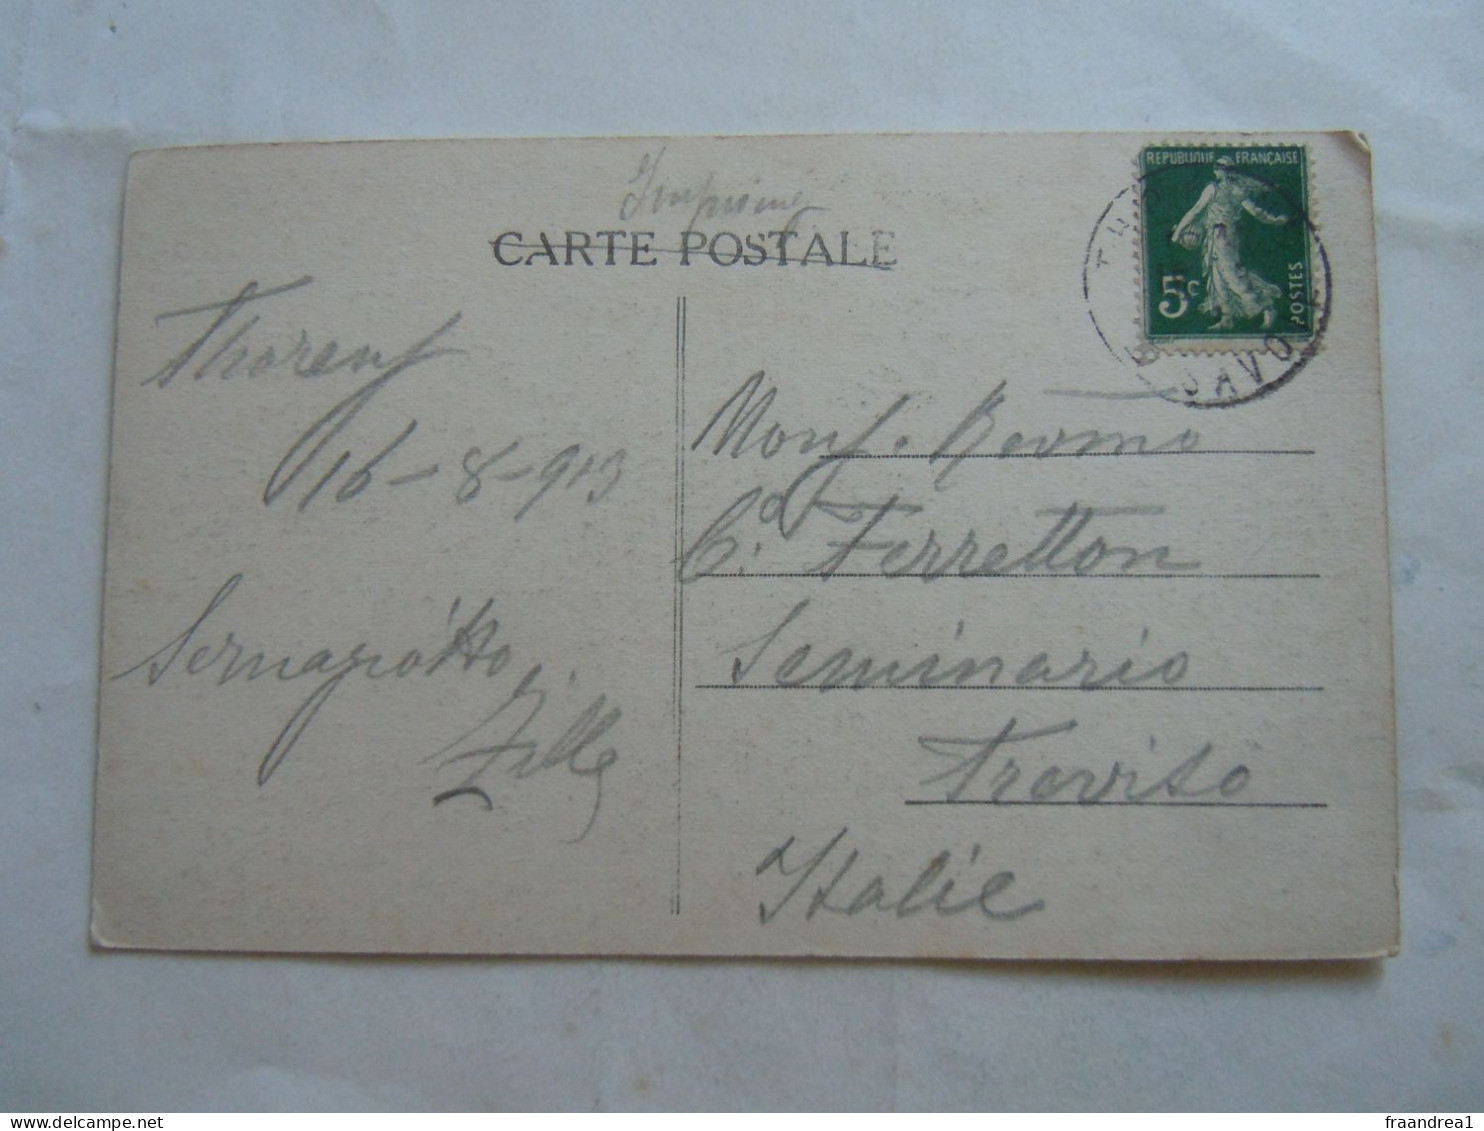 Imprimé
CARTE POSTALE
REPUBLIQUE FRANÇAISE
5c
POSTES
SAVOI
Thorens
16-8-913
Sernagiotto
Mons. Revmo
C. Ferretton
Seminario
Treviso
Italie
fraandrea1